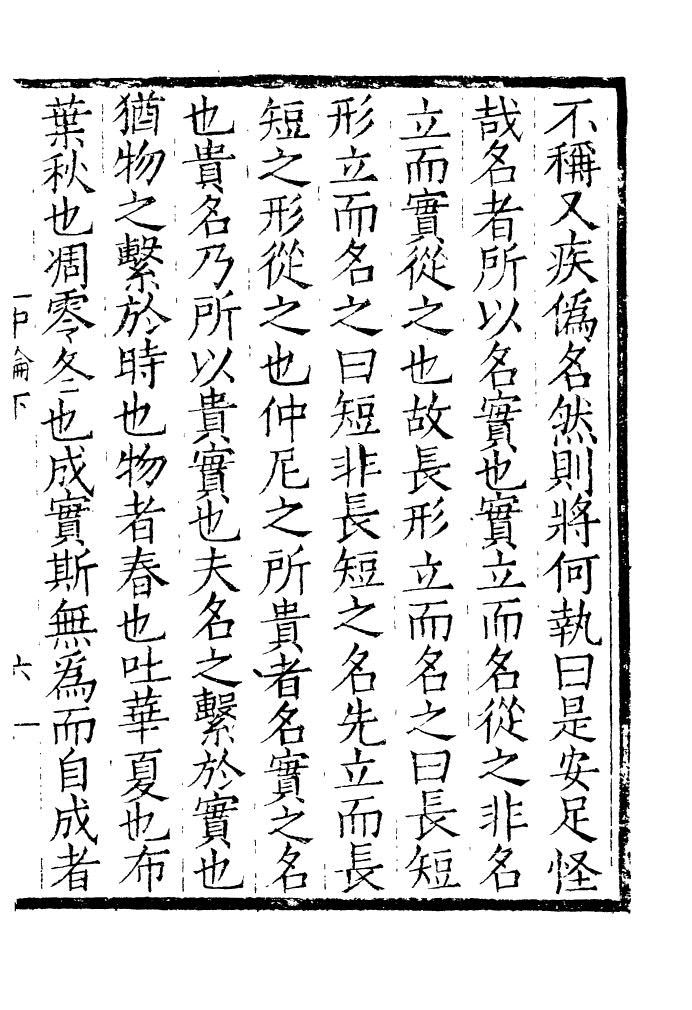 不稱又疾僞名然則將何執曰是安足怪
哉名者所以名實也實立而名從之非名
立而實從之也故長形立而名之曰長短
形立而名之曰短非長短之名先立而長
短之形從之也仲尼之所貴者名實之名
也貴名乃所以貴實也夫名之繫於實也
猶物之繫於時也物者春也吐華夏也布
葉秋也凋零冬也成實斯無為而自成者
中論下
六